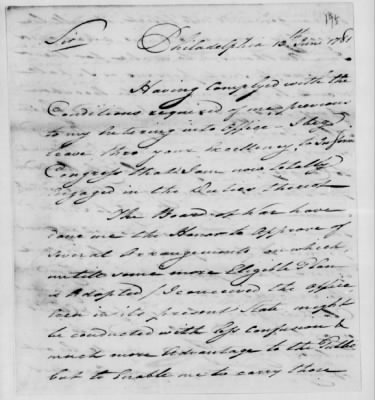 198
Sir Philadelphia 13th June 1781
Having Complyed with the
Conditions required of me previous
to my Entering into Office I beg
leave thro your Excellency to Inform
Congress that I am now totally
engaged in the Duties thereof
The Board of War have
done me the Honor to approve of
Several Arrangements on which
untill some more Eligible Plan
is Adopted / I conceived the Office
even in its present State might
be conducted with less confusion &
much more Advantage to the Public
but to Enable me to carry those